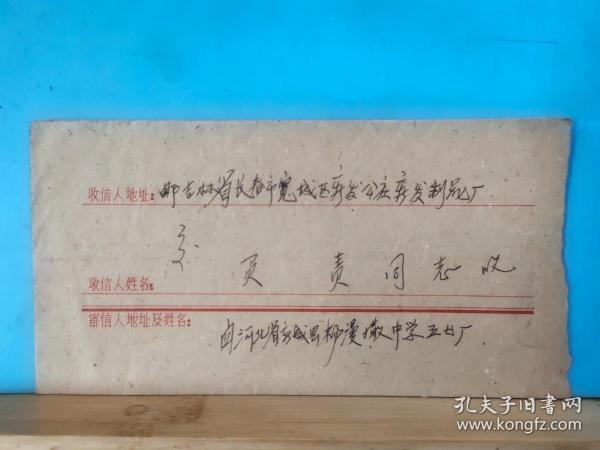 收信人地址: 邮吉林省长春市宽城区奋发公社奋发制瓦厂
交
收信人姓名: 负 责 同 志 收
寄信人地址及姓名: 自河北省县中学五七厂
孔夫子旧书网
www.kongfz.com